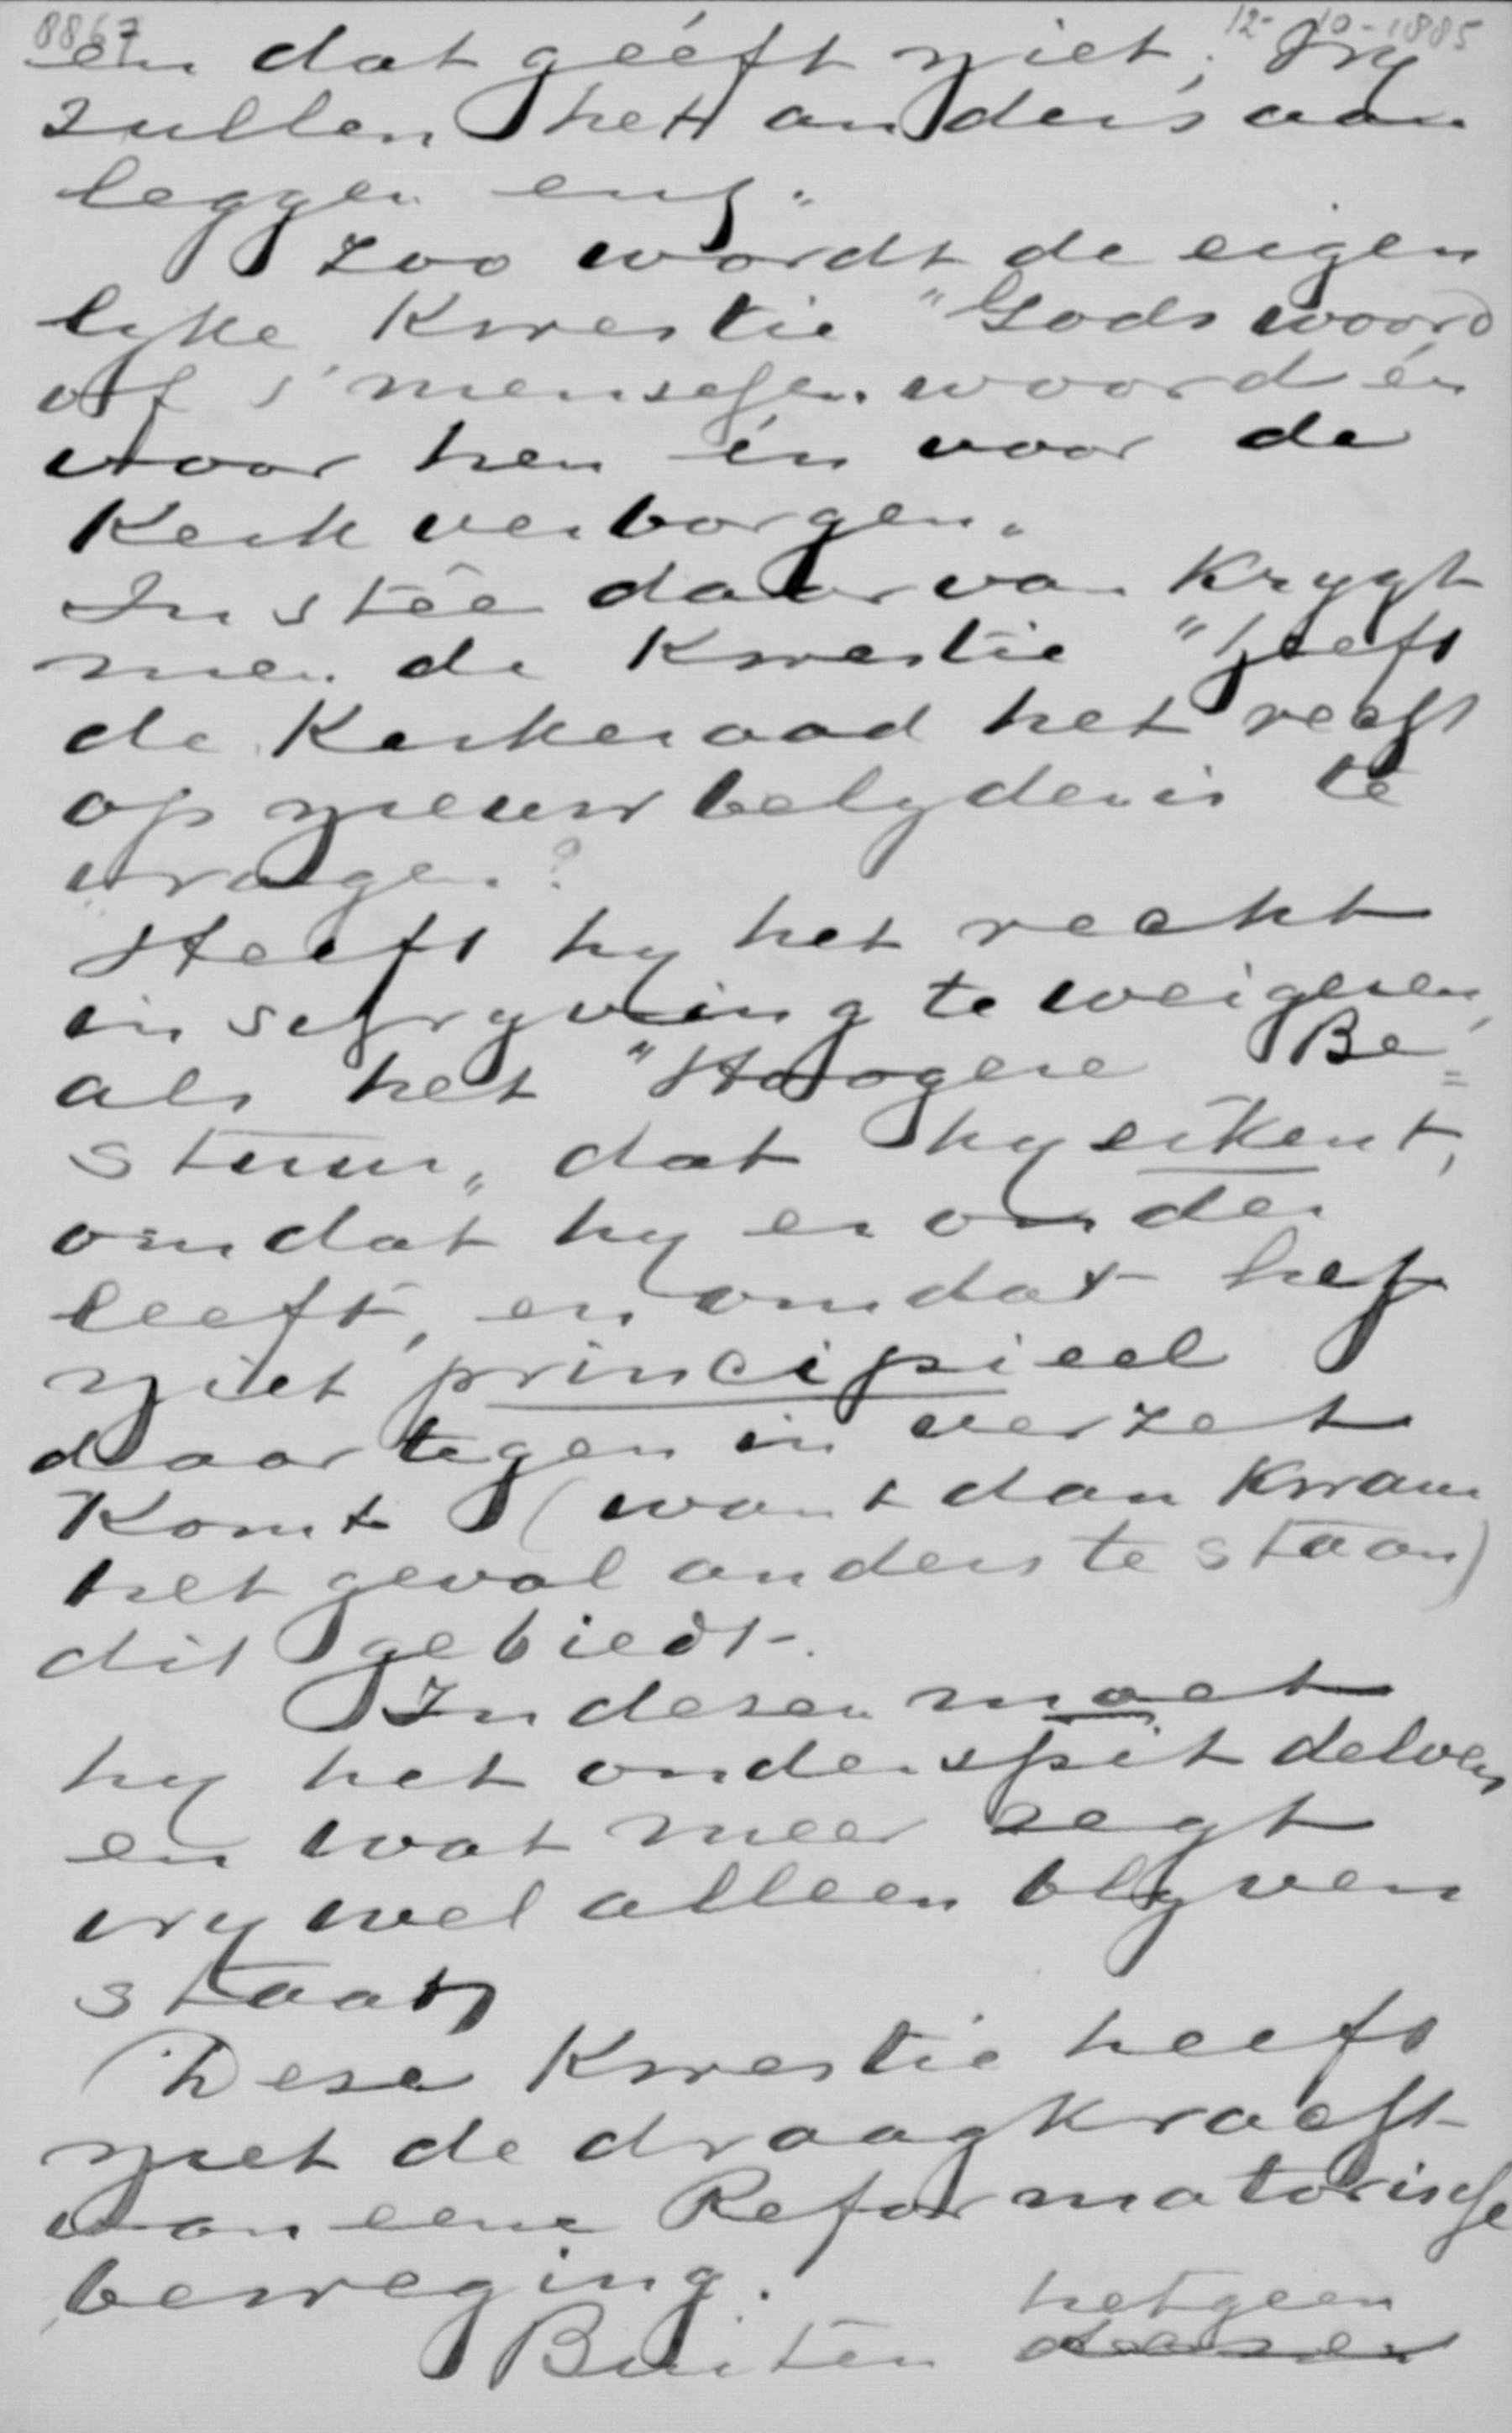 8867
12-10-1885
en dat geéft niet; Wy
zullen het anders aan
leggen enz."
Zoo wordt de eigen
lyke Kwestie "Gods woord
of s' menschen woord én
voor hen én voor de
Kerk verborgen.
In stêe daarvan Krygt
men de Kwestie "heeft
de Kerkeraad het recht
op nieuw belydenis te
vragen?
Heeft hy het recht
inschryving te weigeren,
als het "Hoogere Be=
stuur" dat hy erkent,
omdat hy er onder
leeft, en omdat hy
niet principieel
daartegen in verzet
Komt (want dan Kwam
het geval anders te staan)
dit gebiedt.
In dezen moet
hy het onderspit delven
en wat meer zegt
vry wel alleen blyven
staan
Deze Kwestie heeft
niet de draagkracht
van eene Reformatorische
beweging.
hetgeen
Buiten dezen